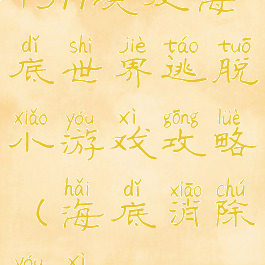 dǐ shì jiè táo tuō
底世界逃脱
xiǎo yóu xì gōng lüè
小游戏攻略
hǎi dǐ xiāo chú
（海底消除
yóu xì